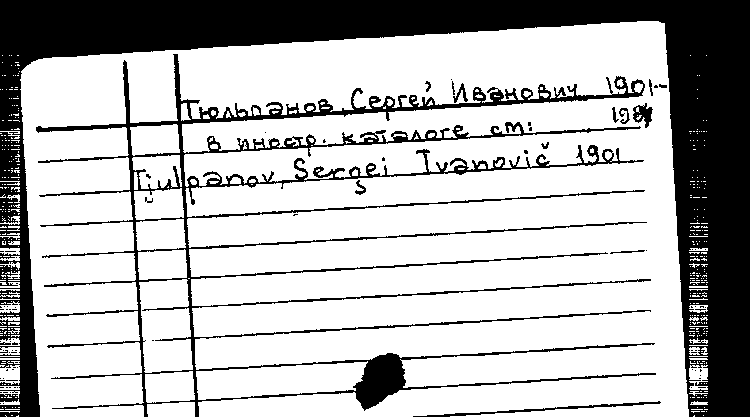 Тюльпанов, Сергей Иванович 1901-
в иностр. каталоге см:
Tjulpanov, Sergej Ivanovič 1901